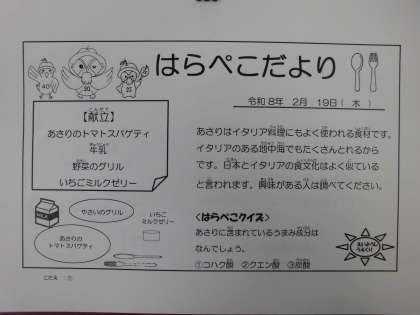 はらぺこだより
令和8年 2月 19日( 木 )
【献立】
あさりのトマトスパゲティ
牛乳
野菜のグリル
いちごミルクゼリー
あさりはイタリア料理にもよく使われる食材です。
イタリアのある地中海でもたくさんとれるから
です。日本とイタリアの食文化はよく似ている
と言われます。興味がある人は調べてください。
やさいのグリル
いちご
ミルクゼリー
あさりの
トマトスパゲティ
<はらぺこクイズ>
あさりに含まれているうまみ成分は
なんでしょう。
①コハク酸 ②クエン酸 ③炭酸